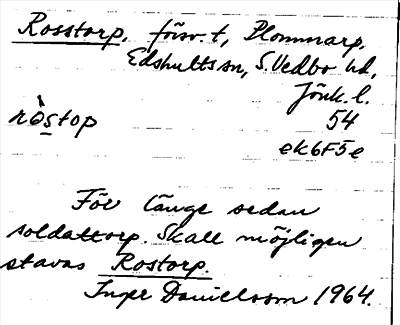 Rosstorp, försv. t, Plommarp,
Edshults sn, S. Vedbo hd,
Jönk. l.
ròstop 54
ek6F5e
För länge sedan
soldattorp. Skall möjligen
stavas Rostorp.
Inger Danielsson 1964.